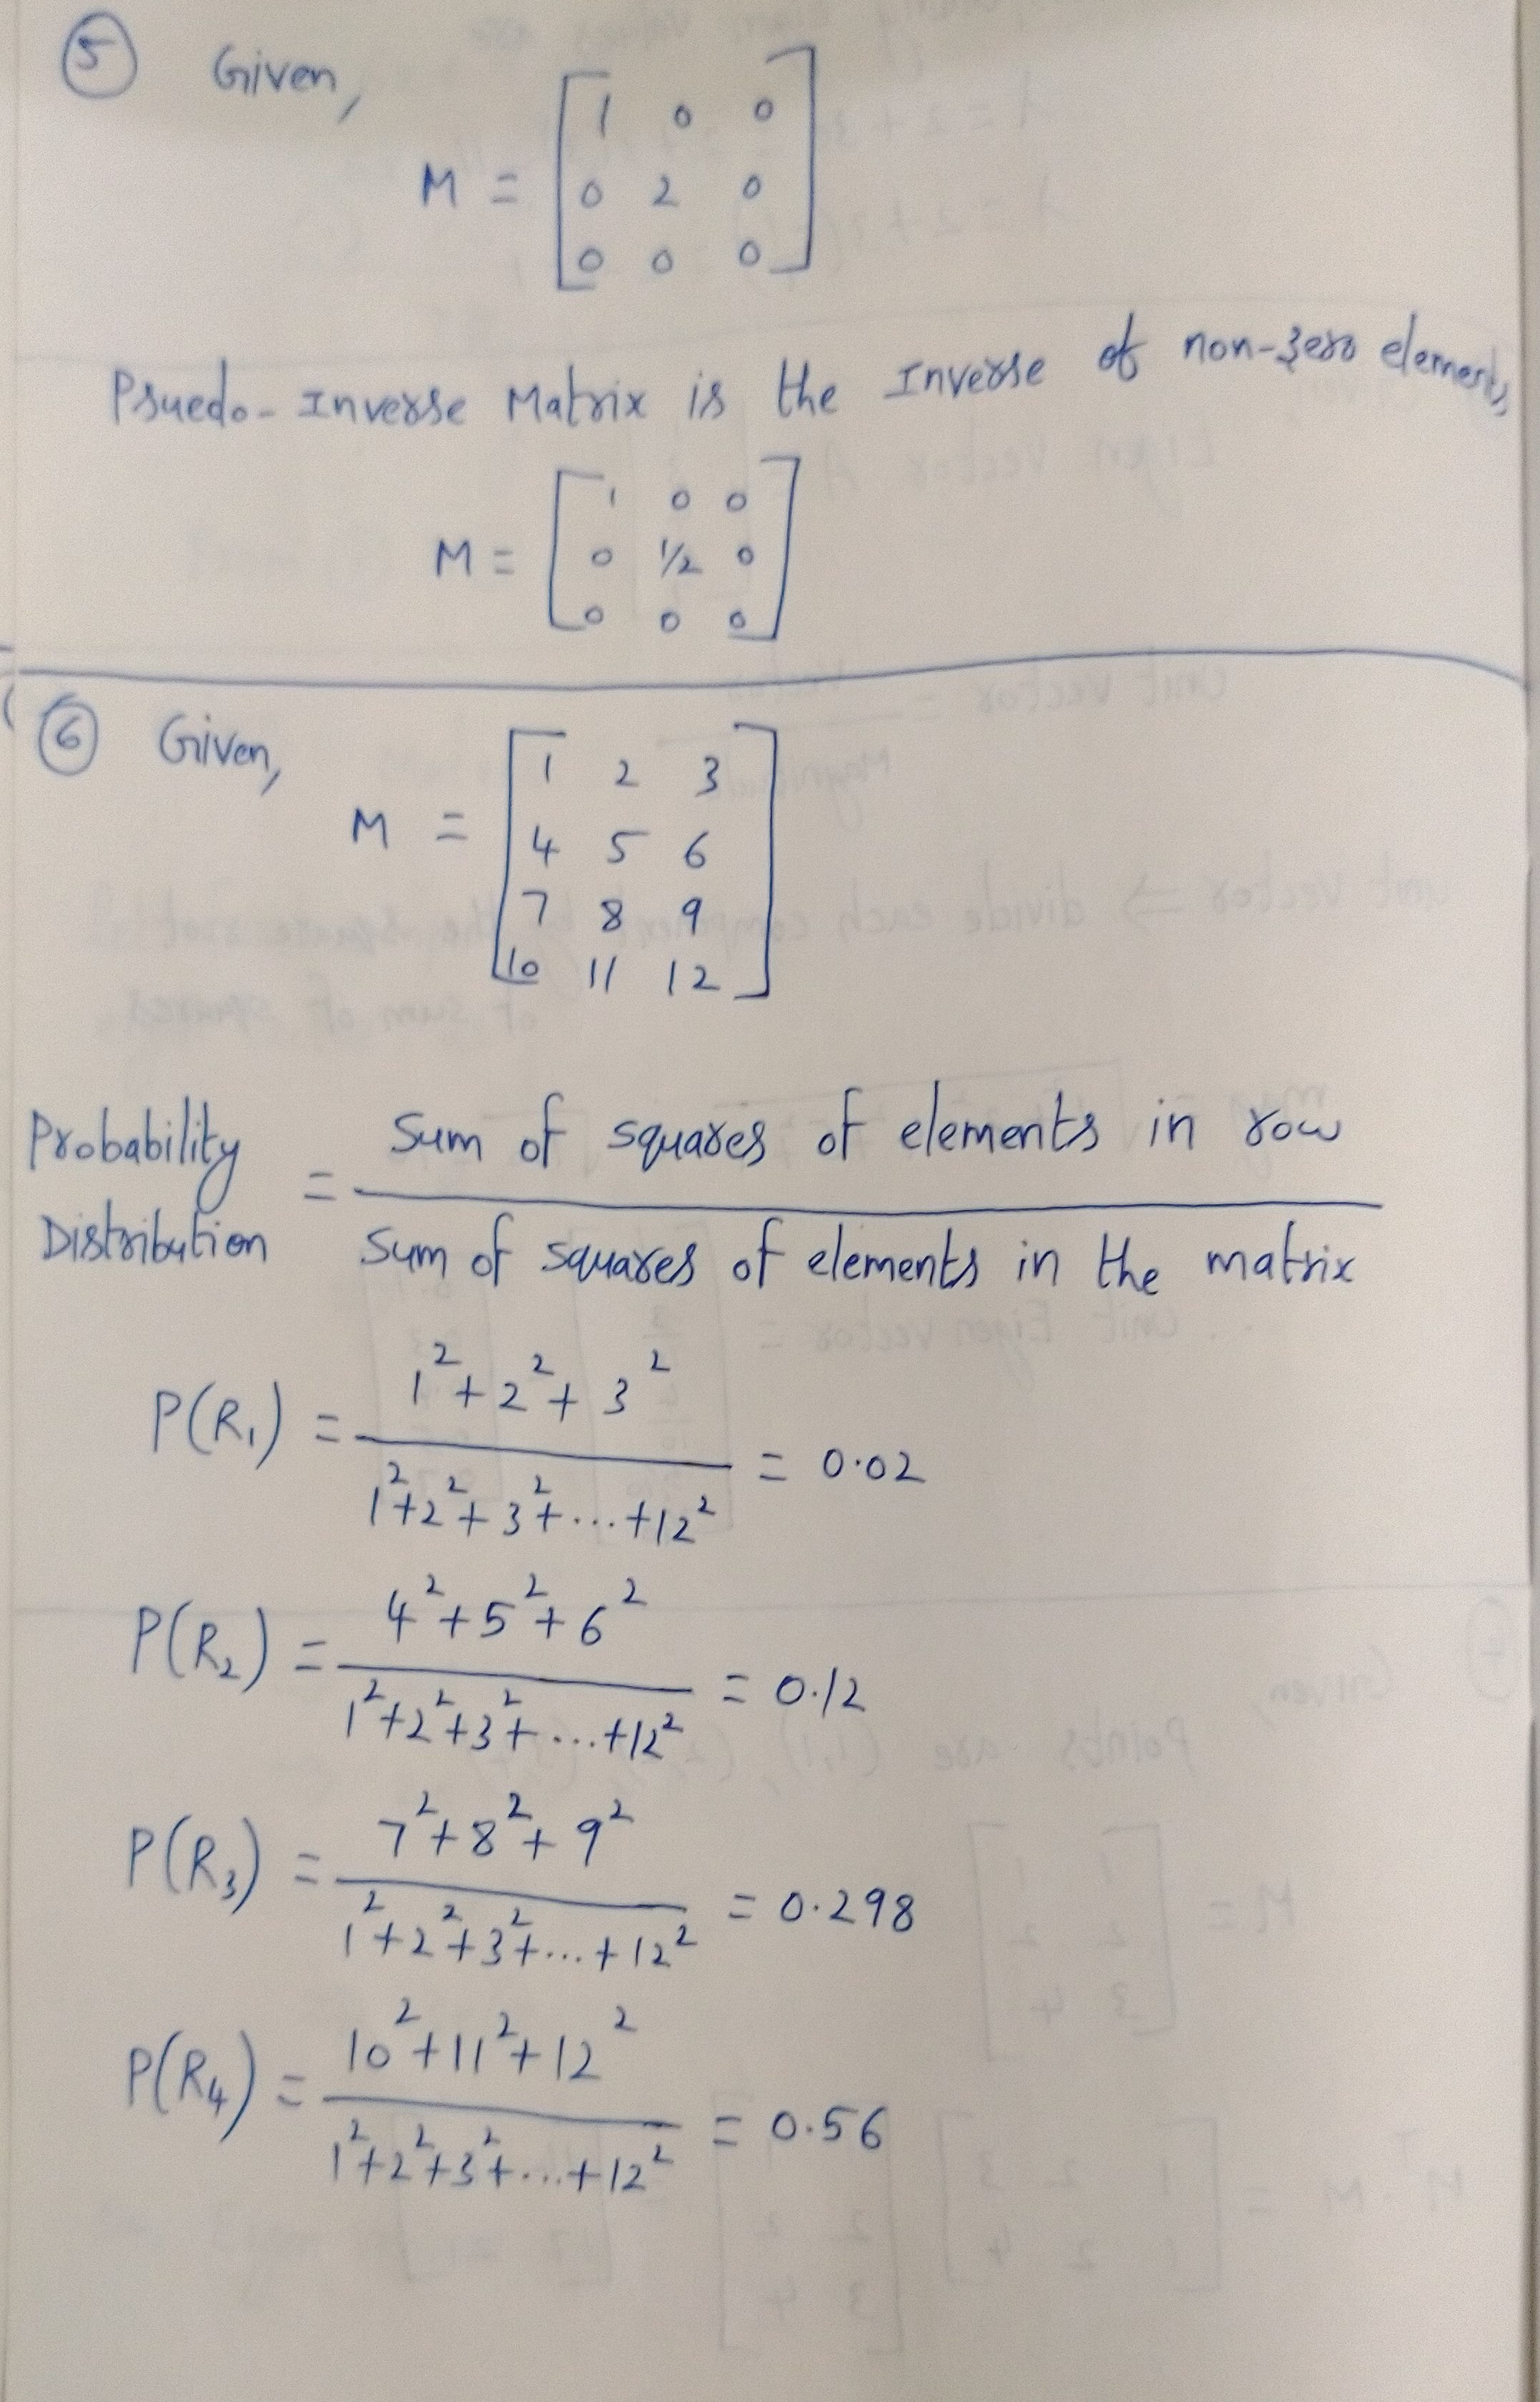 5 Given,
M = [ 1 0 0
0 2 0
0 0 0 ]
Psuedo-Inverse Matrix is the Inverse of non-zero elements,
M = [ 1 0 0
0 1/2 0
0 0 0 ]
6 Given,
M = [ 1 2 3
4 5 6
7 8 9
10 11 12 ]
Probability Distribution = Sum of squares of elements in row
Sum of squares of elements in the matrix
P(R₁) = 1² + 2² + 3²
1² + 2² + 3² + ... + 12² = 0.02
P(R₂) = 4² + 5² + 6²
1² + 2² + 3² + ... + 12² = 0.12
P(R₃) = 7² + 8² + 9²
1² + 2² + 3² + ... + 12² = 0.298
P(R₄) = 10² + 11² + 12²
1² + 2² + 3² + ... + 12² = 0.56